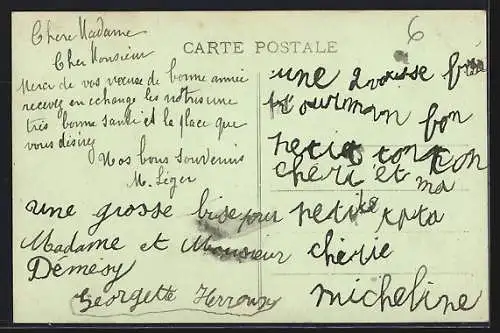 Chere Madame
Cher Monsieur
Merci de vos voeuse de bonne année
recevez en echange les notres une
très bonne santé et la place que
vous désirez
Nos bons souvenirs
M. Léger
une grosse bise pour
Madame et Monsieur
Démésy
Georgette
CARTE POSTALE
6
une grosse
bon
petit ton ton
chéri et ma
petite tata
chérie
micheline